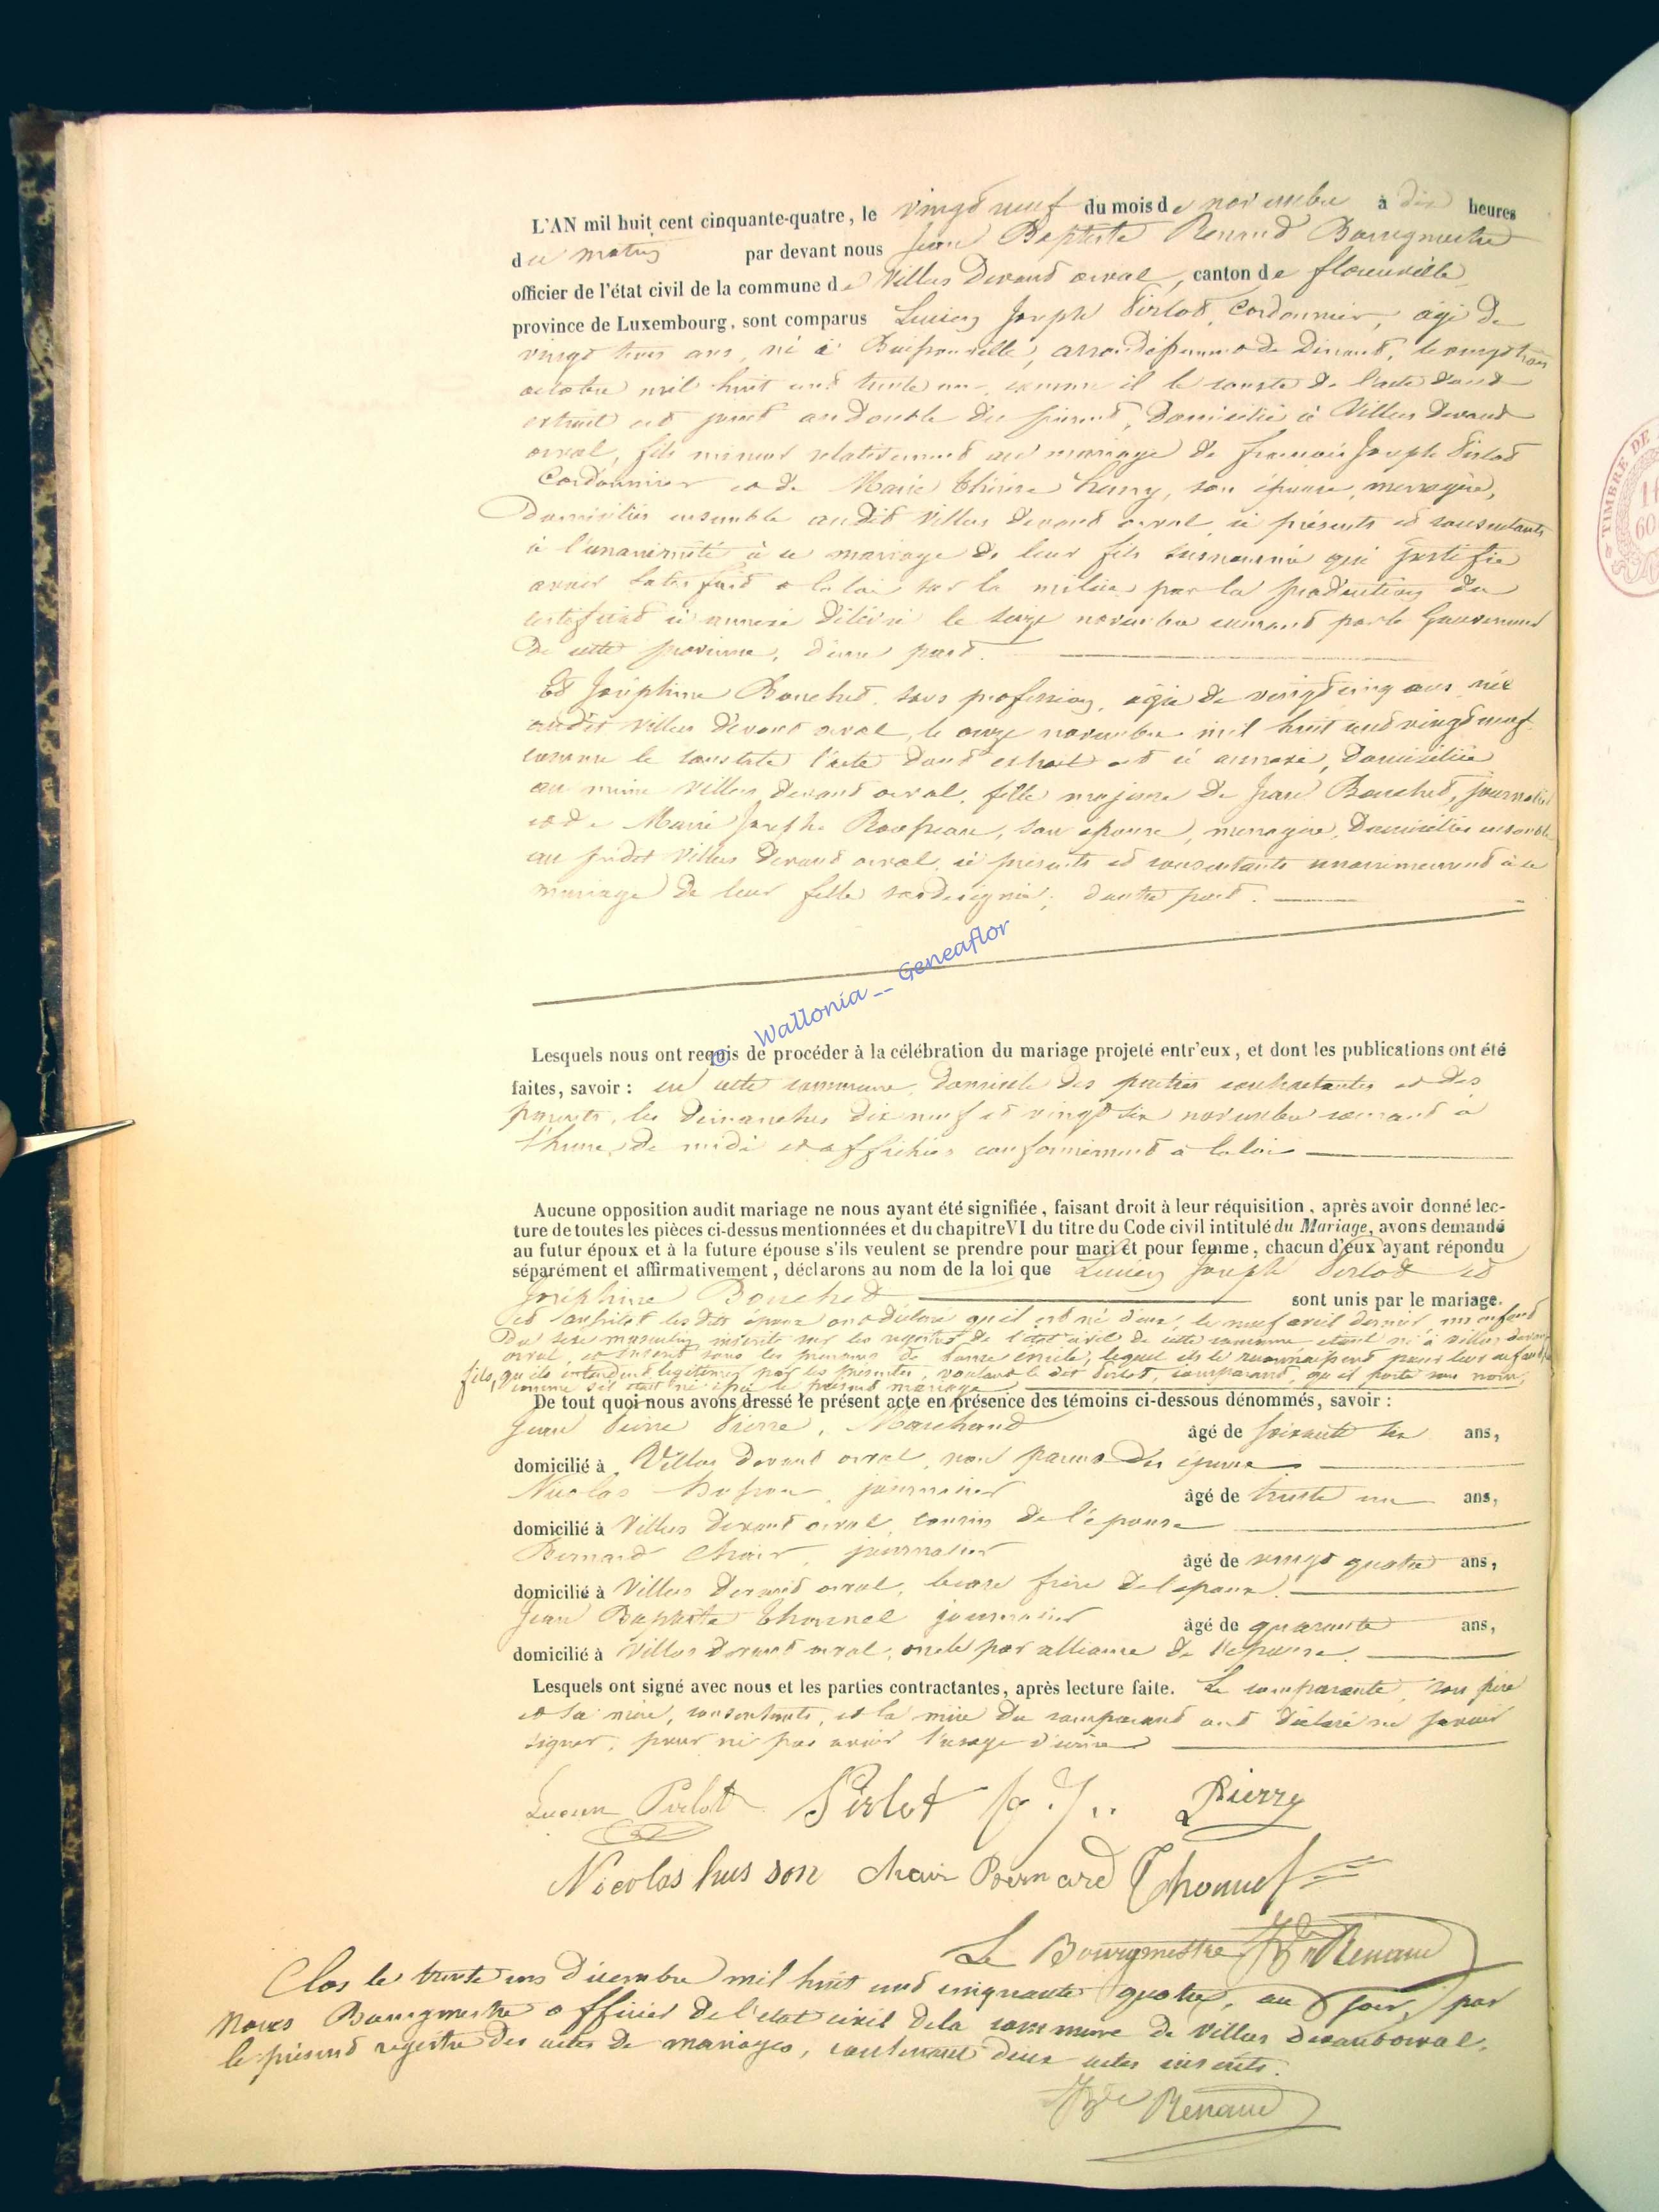 L'AN mil huit cent cinquante-quatre, le vingt neuf du mois de novembre à dix heures
du matin par devant nous Jean Baptiste Renaud Bourgmestre
officier de l'état civil de la commune de Villers Devant orval, canton de florenville
province de Luxembourg, sont comparus Lucien Joseph Pirlot, Cordonnier, agé de
vingt trois ans, né à arrondissement de Dinant, le vingt trois
octobre mil huit cent trente un, comme il le conste de l'acte dont
extrait est joint au double du présent, domicilié à Villers Devant
orval, fils mineur relativement au mariage de francois Joseph Pirlot
Cordonnier et de Marie thérèse henry, son épouse, menagère,
domiciliés ensemble audit villers devant orval, ici présents et consentants
à l'unanimité à ce mariage de leur fils surnommé qui justifie
avoir satisfait à la loi sur la milice par la production du
certificat ci annexé délivré le seize novembre courant par le Gouverneur
de cette province, d'une part.
Et Joséphine Bouchet, sans profession, agée de vingt cinq ans, née
audit villers devant orval, le onze novembre mil huit cent vingt neuf
comme le constate l'acte dont extrait est ci annexé, domiciliée
au même villers devant orval, fille majeure de Jean Bouchet, journalier
et de Marie Josephe son épouse, menagère, domiciliés ensemble
au susdit villers devant orval, ici présents et consentants unanimement à ce
mariage de leur fille susdesignée; d'autre part.
© Wallonia -- Geneaflor
Lesquels nous ont requis de procéder à la célébration du mariage projeté entr'eux, et dont les publications ont été
faites, savoir : en cette commune, domicile des parties contractantes et des
parents, les dimanches dix neuf et vingt six novembre courant à
l'heure de midi et affichées conformément à la loi
Aucune opposition audit mariage ne nous ayant été signifiée, faisant droit à leur réquisition, après avoir donné lec-
ture de toutes les pièces ci-dessus mentionnées et du chapitre VI du titre du Code civil intitulé du Mariage, avons demandé
au futur époux et à la future épouse s'ils veulent se prendre pour mari et pour femme, chacun d'eux ayant répondu
séparément et affirmativement, déclarons au nom de la loi que Lucien Joseph Pirlot et
Joséphine Bouchet sont unis par le mariage.
Et aussitot les dits époux ont déclaré qu'il est né d'eux, le neuf avril dernier, un enfant
du sexe masculin inscrit sur les registres de l'état civil de cette commune, étant né à villers devant
orval, et inscrit sous les prénoms de lequel ils le reconnaissent pour leur enfant,
fils, qu'ils entendent legitimer par les présentes, voulant le dit Pirlot, comparant, qu'il porte son nom,
comme s'il était né après le présent mariage
De tout quoi nous avons dressé le présent acte en présence des témoins ci-dessous dénommés, savoir :
Jean Pierre Pierre, Marchand âgé de soixante six ans,
domicilié à Villers Devant orval, non parent des époux
Nicolas husson, journalier âgé de trente un ans,
domicilié à Villers devant orval, cousin de l'épouse
Bernard Chair, journalier âgé de vingt quatre ans,
domicilié à Villers devant orval, beau frère de l'épouse.
Jean Baptiste Thonnel journalier âgé de quarante ans,
domicilié à Villers devant orval, oncle par alliance de l'épouse.
Lesquels ont signé avec nous et les parties contractantes, après lecture faite. La comparante, son père
et sa mère, consentants, et la mère du comparant ont déclaré ne savoir
signer, pour ne pas avoir l'usage d'écrire
Lucien Pirlot Pirlot f. J.. Pierre
Nicolas husson chair Bernard Thonnel
Le Bourgmestre JBte Renaud
Clos le trente un Décembre mil huit cent cinquante quatre, au soir, par
nous Bourgmestre officier de l'état civil de la commune de Villers devant orval,
le présent registre des actes de mariages, contenant deux actes inscrits.
JBte Renaud
TIMBRE DE